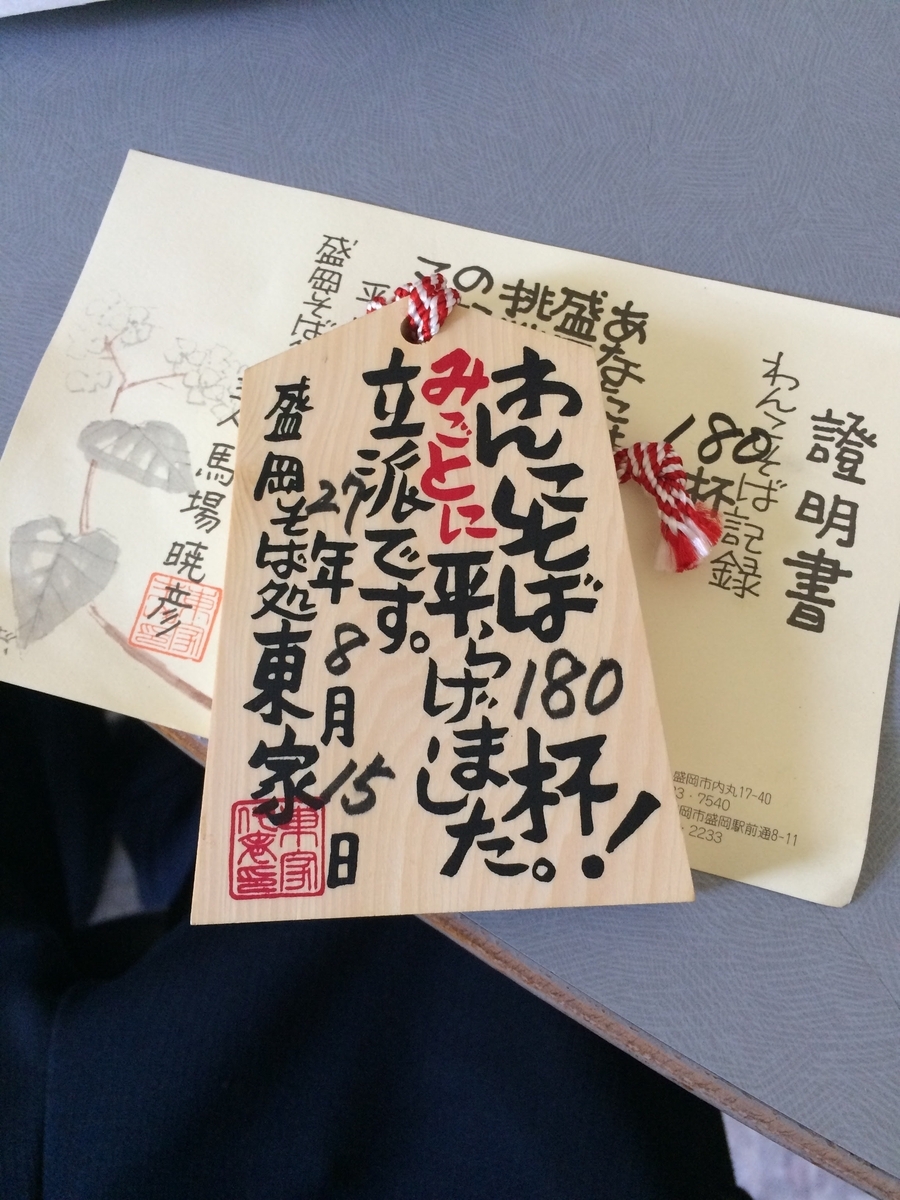 わんこそば180杯!
みごとに平らげました。
立派です。
27年8月15日
盛岡そば処東家
證明書
わんこそば記録
180杯
あなたは
盛
挑
この
盛岡そば
馬場暁彦
盛岡市内丸17-40
3・7540
岡市盛岡駅前通8-11
・2233